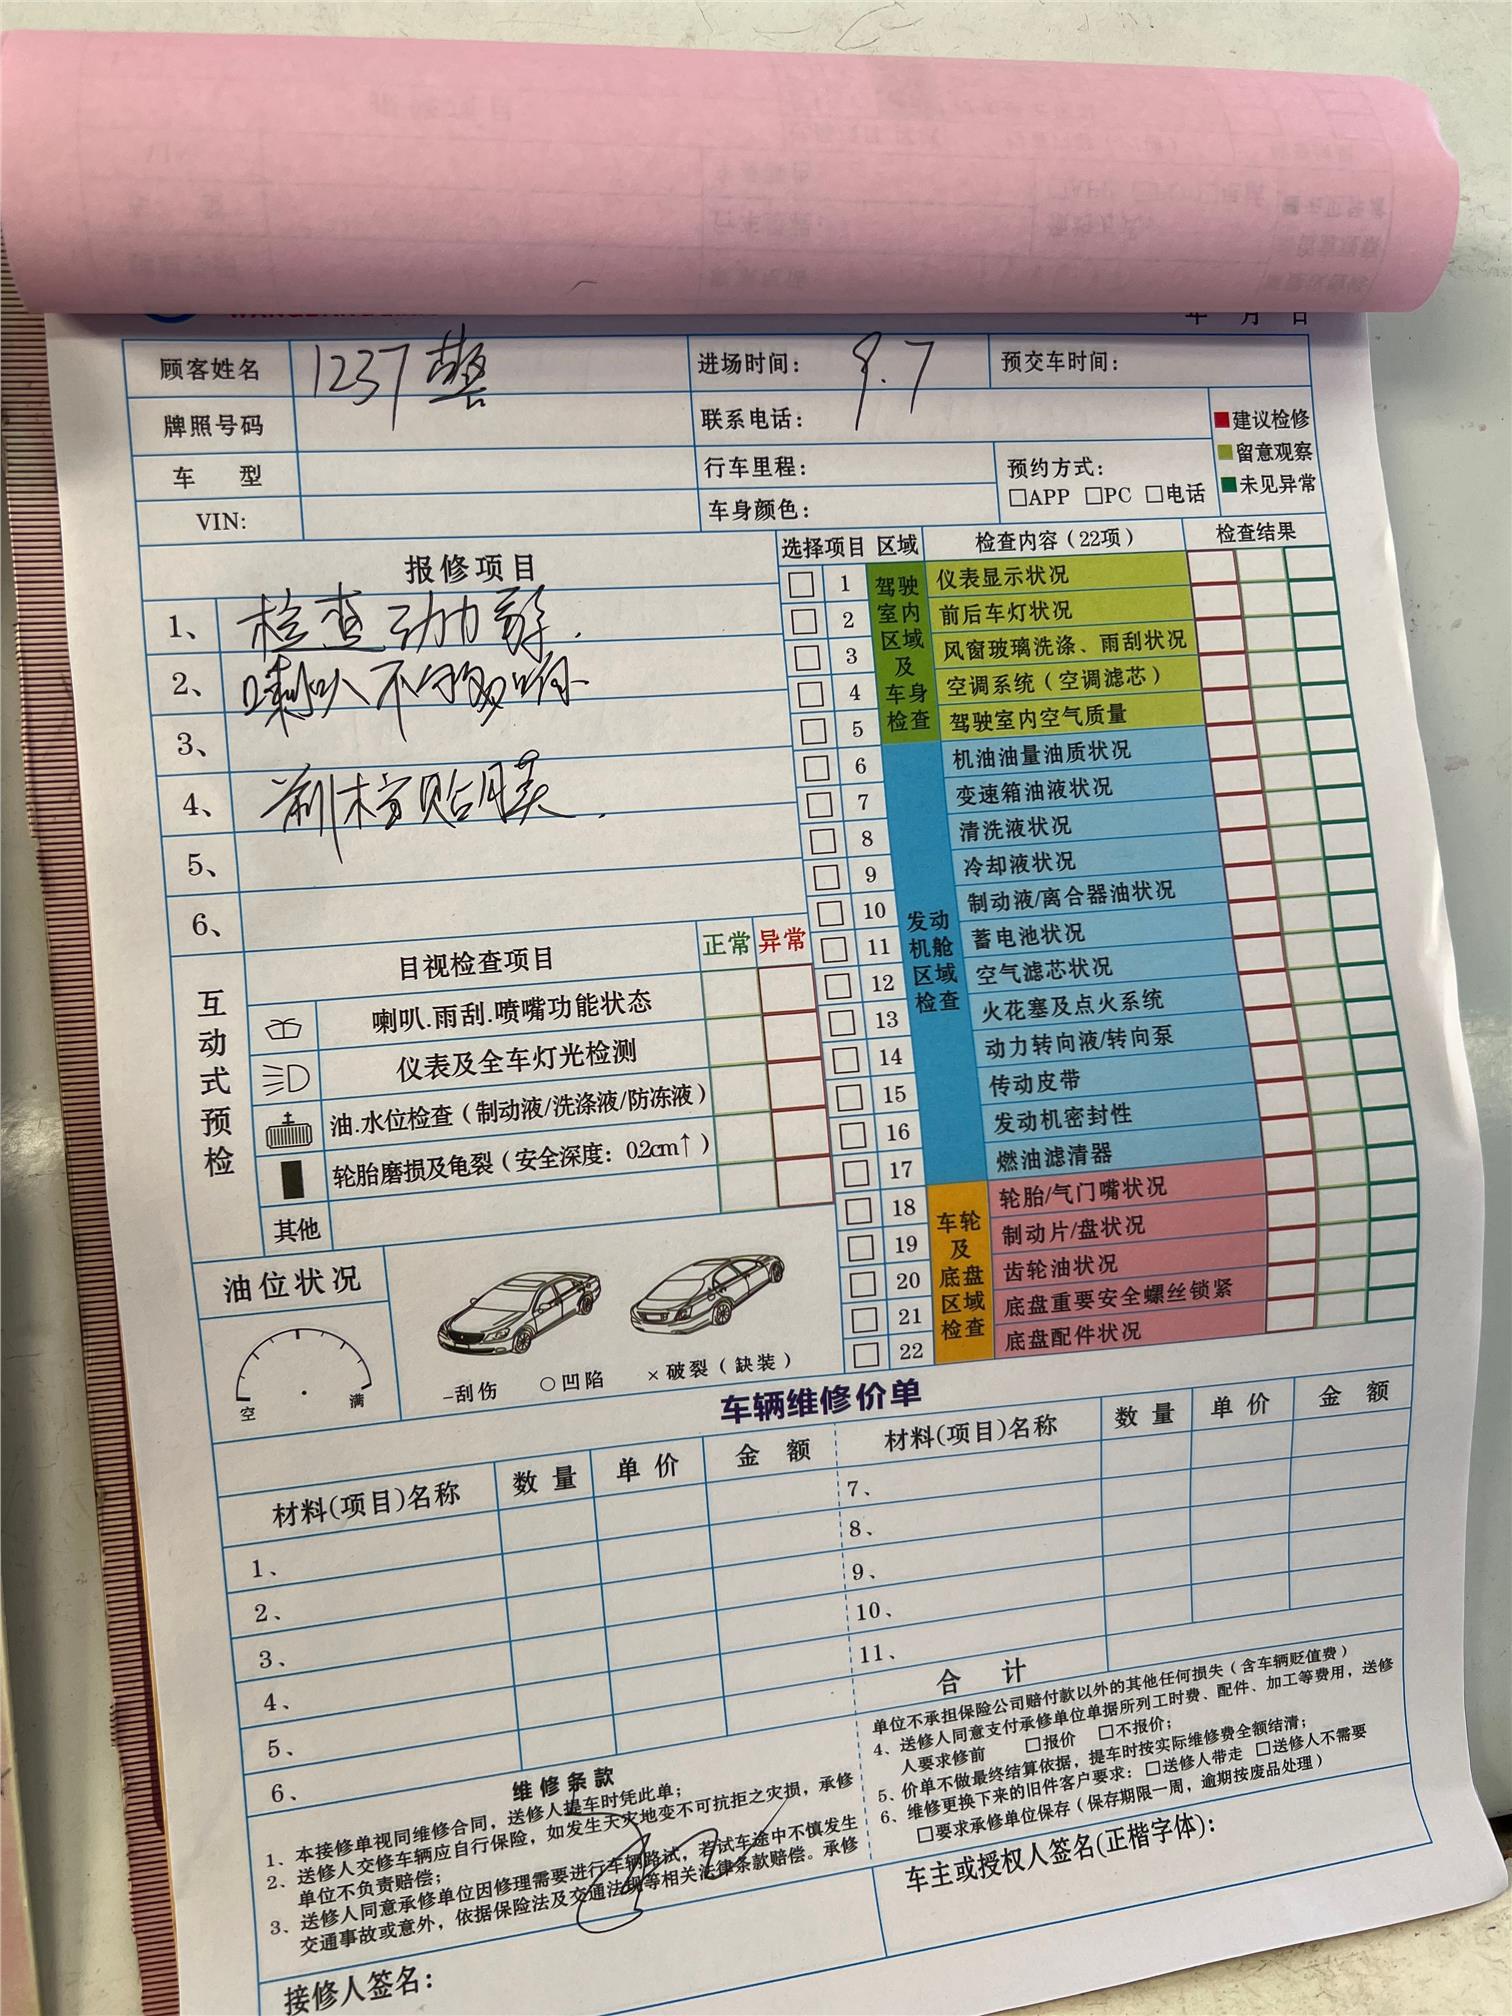 年 月 日
顾客姓名 1237警 进场时间: 9.7 预交车时间:
牌照号码 联系电话:
■建议检修
■留意观察
■未见异常
车 型 行车里程: 预约方式:
□APP □PC □电话
VIN: 车身颜色:
报修项目
1、检查动力
2、喇叭不够响
3、
4、前档贴膜.
5、
6、
选择项目 区域 检查内容(22项) 检查结果
驾驶室内区域及车身检查
□ 1 仪表显示状况
□ 2 前后车灯状况
□ 3 风窗玻璃洗涤、雨刮状况
□ 4 空调系统(空调滤芯)
□ 5 驾驶室内空气质量
发动机舱区域检查
□ 6 机油油量油质状况
□ 7 变速箱油液状况
□ 8 清洗液状况
□ 9 冷却液状况
□ 10 制动液/离合器油状况
□ 11 蓄电池状况
□ 12 空气滤芯状况
□ 13 火花塞及点火系统
□ 14 动力转向液/转向泵
□ 15 传动皮带
□ 16 发动机密封性
□ 17 燃油滤清器
车轮及底盘区域检查
□ 18 轮胎/气门嘴状况
□ 19 制动片/盘状况
□ 20 齿轮油状况
□ 21 底盘重要安全螺丝锁紧
□ 22 底盘配件状况
互动式预检
目视检查项目 正常 异常
喇叭.雨刮.喷嘴功能状态
仪表及全车灯光检测
油.水位检查(制动液/洗涤液/防冻液)
轮胎磨损及龟裂(安全深度: 0.2cm↑)
其他
油位状况
空 满
–刮伤 ○凹陷 ×破裂(缺装)
车辆维修价单
材料(项目)名称 数量 单价 金额 材料(项目)名称 数量 单价 金额
1、
2、
3、
4、
5、
6、
7、
8、
9、
10、
11、
合 计
维修条款
1、本接修单视同维修合同，送修人提车时凭此单；
2、送修人交修车辆应自行保险，如发生天灾地变不可抗拒之灾损，承修
单位不负责赔偿；
3、送修人同意承修单位因修理需要进行车辆路试，若试车途中不慎发生
交通事故或意外，依据保险法及交通法规等相关法律条款赔偿。承修
单位不承担保险公司赔付款以外的其他任何损失(含车辆贬值费)
4、送修人同意支付承修单位单据所列工时费、配件、加工等费用，送修
人要求修前 □报价 □不报价；
5、价单不做最终结算依据，提车时按实际维修费全额结清；
6、维修更换下来的旧件客户要求: □送修人带走 □送修人不需要
□要求承修单位保存(保存期限一周，逾期按废品处理)
接修人签名:
车主或授权人签名(正楷字体):